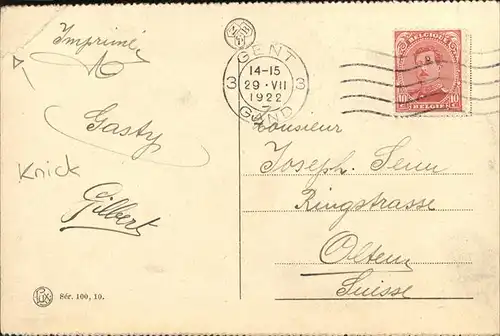 Imprimé
Gasty
Knick
Gilbert
Sér. 100, 10.
3 GENT 3
14-15
29·VII
1922
GAND
BELGIQUE
10 10
BELGIË
Monsieur
Joseph
Ringstrasse
Olten
Suisse